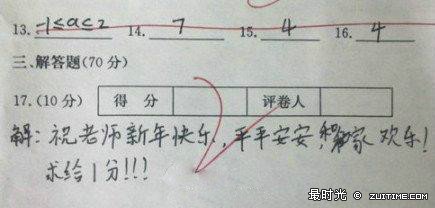 13. -1≤a≤2 14. 7 15. 4 16. 4
三、解答题(70分)
17.(10分) 得 分 评卷人
解：祝老师新年快乐，平平安安，家欢乐！
求给1分!!!
最时光 © ZUITIME.COM